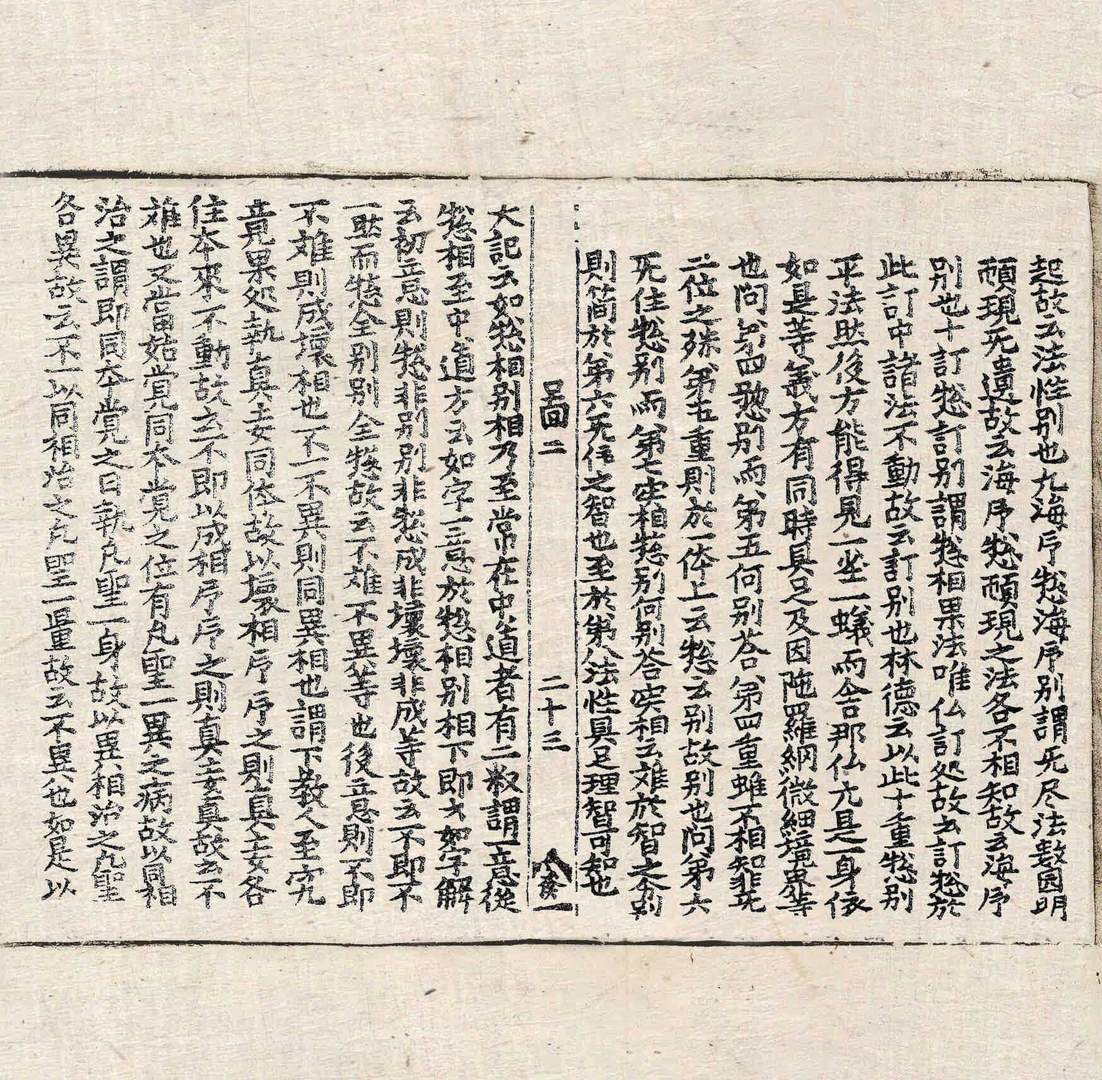 起故云法性別也九海序惣海序別謂无尽法数因明
頓現无遺故云海序惣頓現之法各不相知故云海序
別也十訂惣訂別謂惣相果法唯仏訂処故云訂惣於
此訂中諸法不動故云訂別也林德云以此十重惣別
平法然後方能得見一坐一蟻而舍那仏亢是一身依
如是等義方有同時具足及因陁羅網微細境界等
也問第四惣別而第五何別荅第四重雖不相知非无
二位之殊第五重則於一体上云惣云別故別也問第六
无住惣別而第七实相惣別何別荅实相云难於智之分別
則簡於第六无住之智也至於第八法性具足理智可知也
圖二 二十三
大記云如惣相別相乃至常在中道者有二叙謂一意從
惣相至中道方云如字一意於惣相別相下即幷如字解
云初意則惣非別別非惣成非壞壞非成等故云不即不
一然而惣全別別全惣故云不難不異等也後意則不即
不难則成壞相也不一不異則同異相也謂下教人至究
竟果処執真妄同体故以壞相序序之則真妄各
住本來不動故云不即以成相序序之則真妄真故云不
難也又當始覚同本覚之位有凡聖一異之病故以同相
治之謂即同本覚之日執凡聖一身故以異相治之凡聖
各異故云不一以同相治之凡聖一量故云不異也如是以